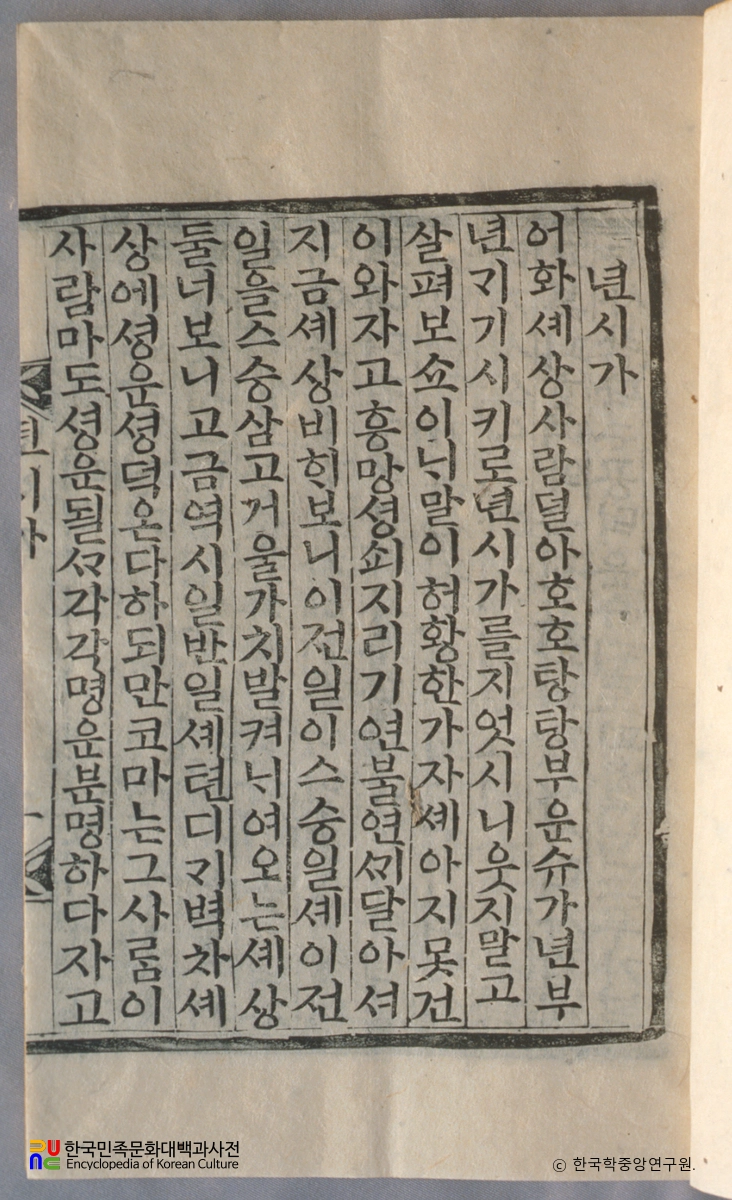 년시가
어화셰상사람덜아호호탕탕부운슈가년부
년기기시키로년시가를지엇시니웃지말고
살펴보쇼이닉말이허황한가자셰아지못건
이와자고흥망셩쇠지리기연불연ᄭᅵ달아셔
지금셰상비ᄒᆡ보니이전일이스승일셰이전
일을스승삼고거울가치발켜닉여오는셰상
둘너보니고금역시일반일셰텬디기벽차셰
상에셩운셩덕온다하되만코마는그사ᄅᆞᆷ이
사람마도셩운될ᄭᅡ각각명운분명하다자고
년시가
한국민족문화대백과사전
Encyclopedia of Korean Culture
© 한국학중앙연구원.